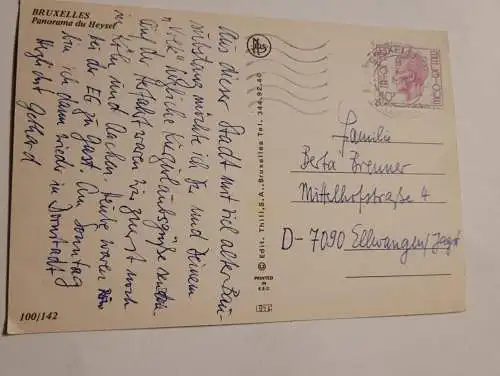 BRUXELLES
Panorama du Heysel
Aus dieser Stadt mit viel alter Bau-
substanz möchte ich Dir und Deinem
"Volk" herzliche Kurzurlaubsgrüße senden.
Auf der Hinfahrt waren wir zuerst noch
in Köln und Aachen, heute waren wir
bei der EG zu Gast. Am Sonntag
bin ich dann wieder in
Herzlichst Gebhard
100/142
© Edit. Thill, S.A., Bruxelles Tel. 344.92.40
PRINTED
IN
E.E.C.
Familie
Berta Brenner
Mittelhofstraße 4
D-7090 Ellwangen/Jagst